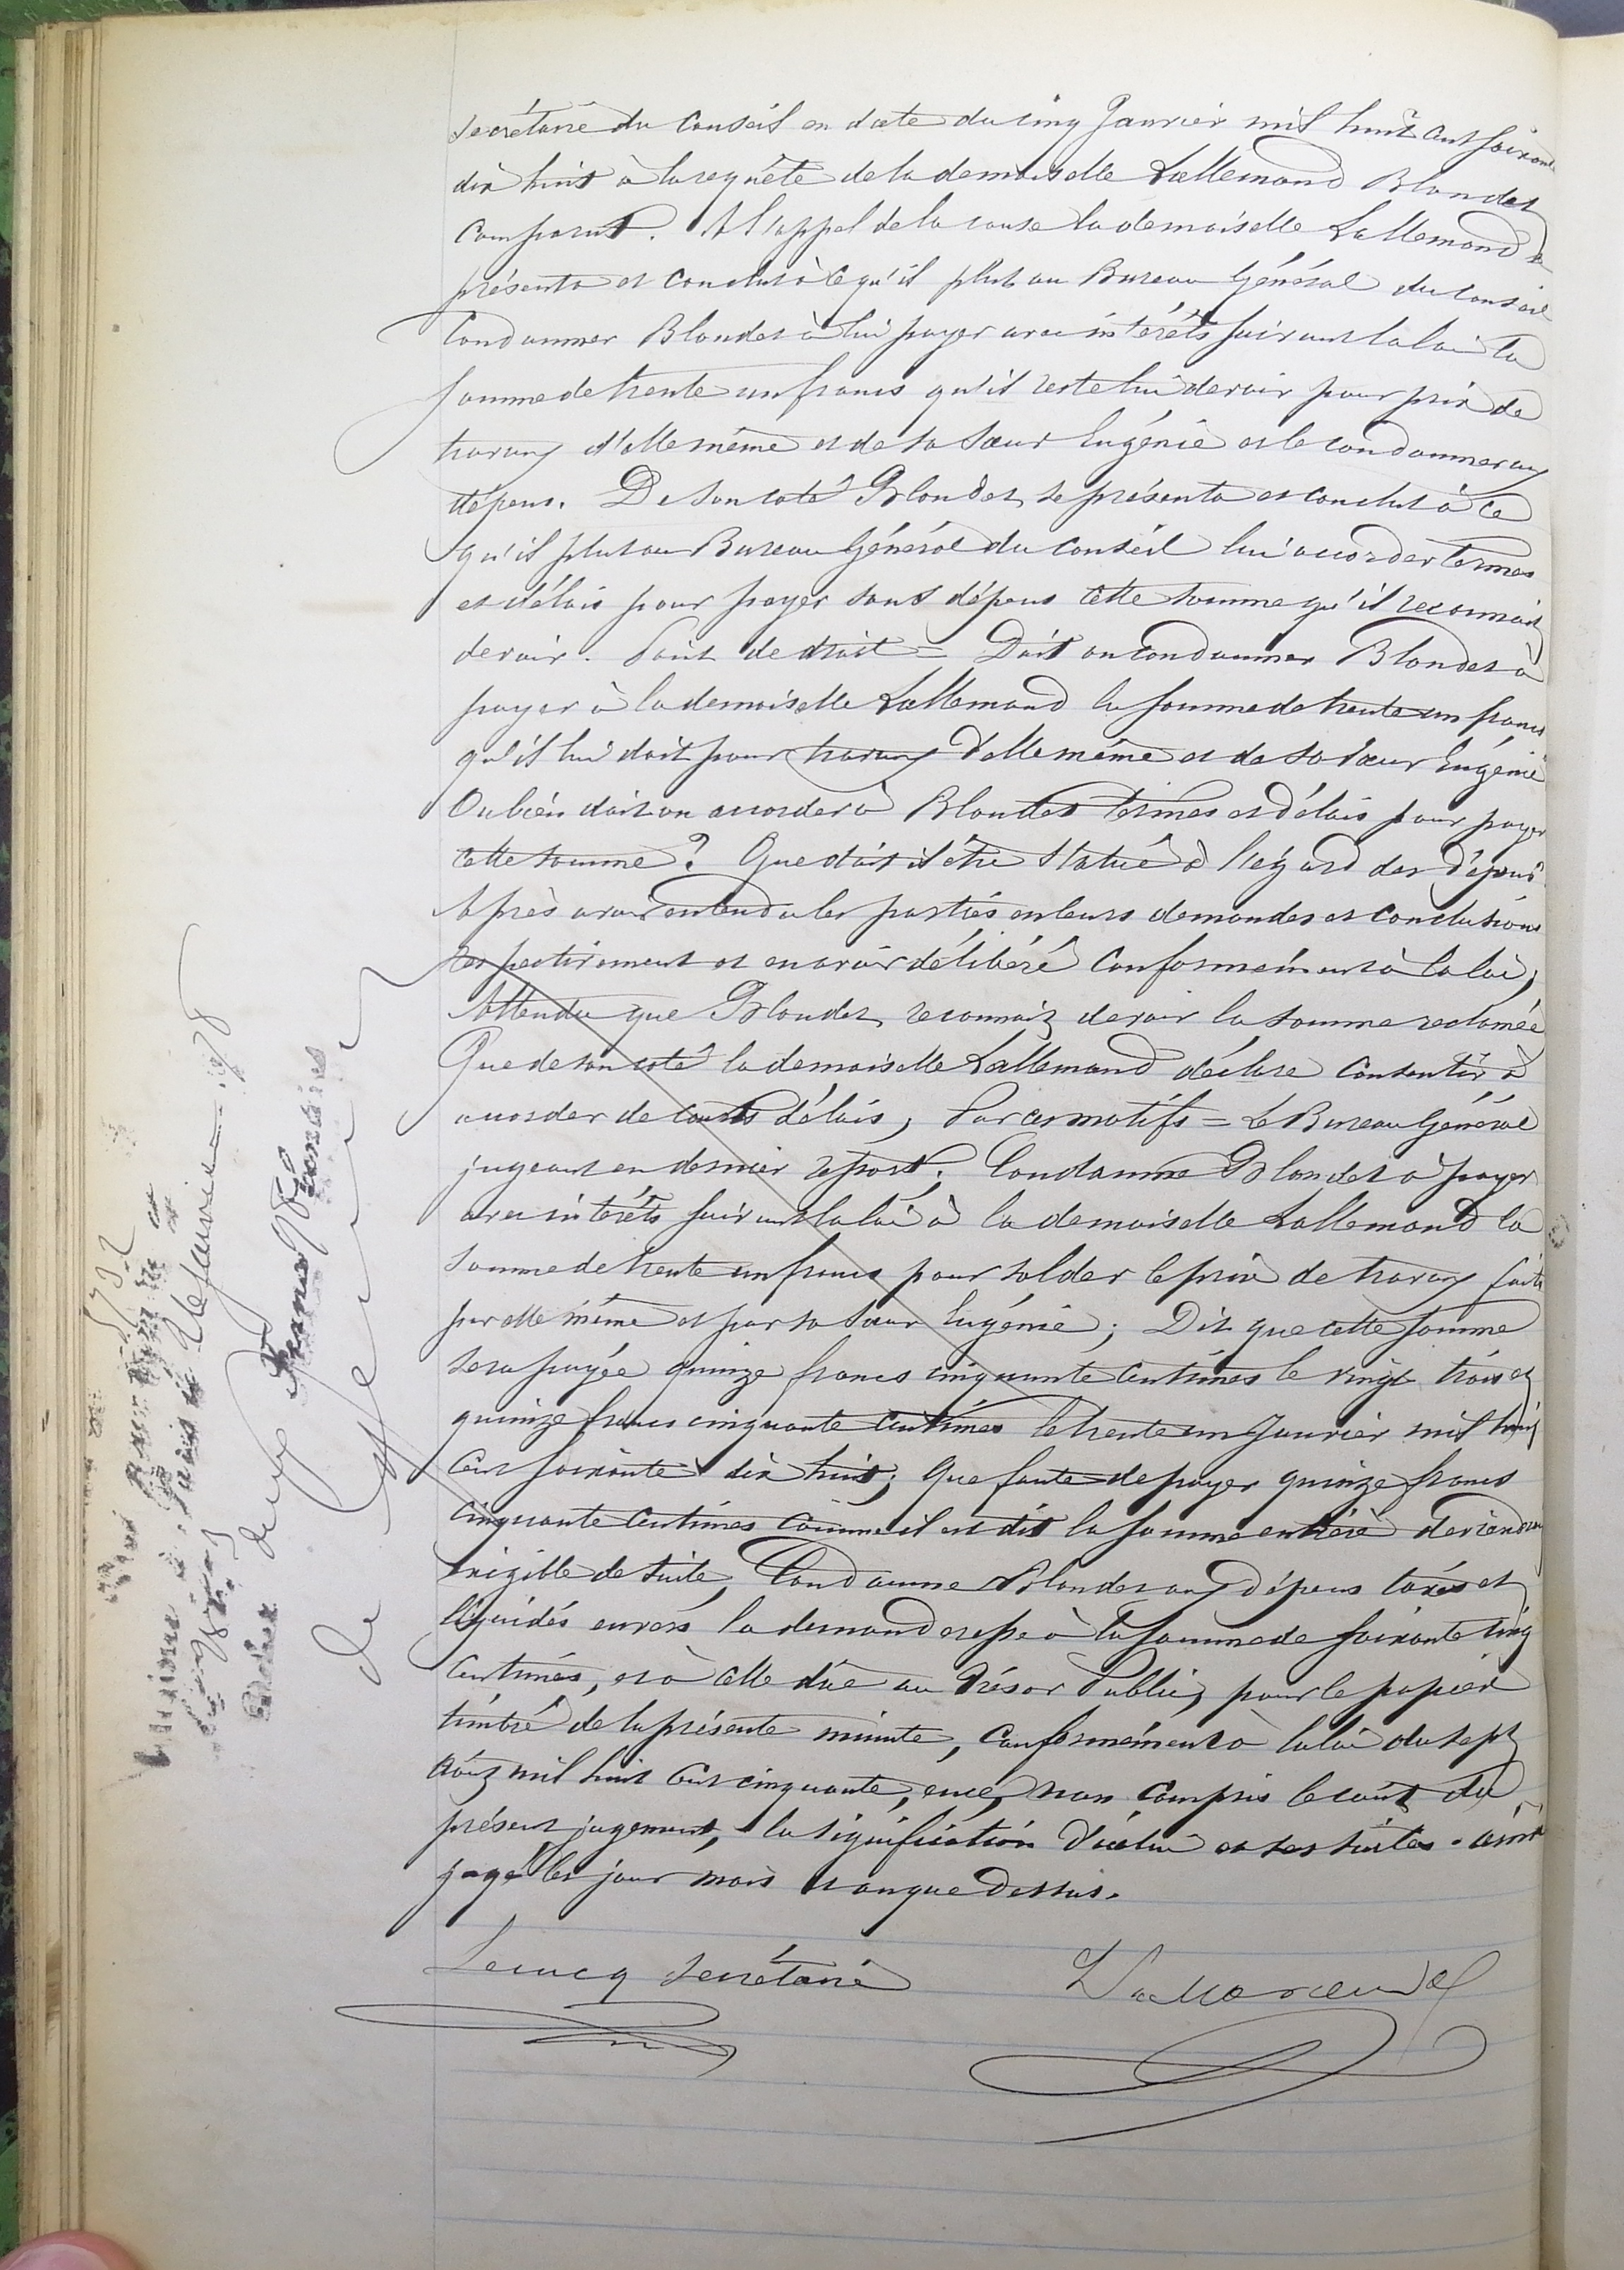 secrétaire du Conseil en date du cinq Janvier mil huit cent soixante
dix huit à la requête de la demoiselle Lallemand Blondet
comparut. A l'appel de la cause la demoiselle Lallemand se
présenta et conclut à ce qu'il plut au Bureau Général du Conseil
Condamner Blondet à lui payer avec intérêts suivant la loi la
somme de trente un francs qu'il reste lui devoir pour prix de
travaux d'elle même et de sa sœur Eugénie et le condamner aux
dépens. De son coté Blondet se présenta et conclut à ce
qu'il plut au Bureau Général du Conseil lui accorder termes
et délais pour payer sans dépens cette somme qu'il reconnait
devoir. Point de droit = Doit on condamner Blondet à
payer à la demoiselle Lallemand la somme de trente un francs
qu'il lui doit pour travaux d'elle même et de sa sœur Eugénie
Ou bien doit on accorder à Blondet termes et délais pour payer
cette somme? Que doit il être statué à l'égard des dépens
Après avoir entendu les parties en leurs demandes et conclusions
respectivement et en avoir délibéré conformément à la loi;
Attendu que Blondet reconnait devoir la somme reclamée
Que de son coté la demoiselle Lallemand déclare consentir à
accorder de courts délais; Par ces motifs = Le Bureau Général
jugeant en dernier ressort; Condamne Blondet à payer
avec intérêts suivant la loi à la demoiselle Lallemand la
somme de trente un francs pour solder le prix de travaux faits
par elle même et par sa sœur Eugénie; Dit que cette somme
sera payée quinze francs cinquante centimes le vingt trois et
quinze francs cinquante centimes le trente un Janvier mil huit
cent soixante dix huit; Que faute de payer quinze francs
cinquante centimes comme il est dit la somme entière deviendra
exigible de suite, Condamne Blondet aux dépens taxés et
liquidés envers la demanderesse à la somme de soixante cinq
centimes, et à celle due au Trésor Public, pour le papier
timbré de la présente minute, conformément à la loi du sept
août mil huit cent cinquante, ence, non compris le coût du
présent jugement, la signification d'icelui et ses suites. ainsi
jugé les jour mois et an que dessus.
Lecucq secrétaire